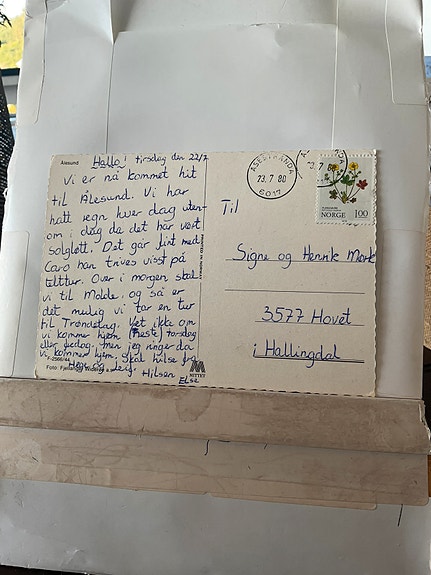 Ålesund
Hallo! tirsdag den 22/7
Vi er nå kommet hit
til Ålesund. Vi har
hatt regn hver dag uten-
om i dag da det har vært
solgløtt. Det går fint med
Caro han trives visst på
telttur. Over i morgen skal
vi til Molde, og så er
det mulig vi tar en tur
til Trøndelag. Vet ikke om
vi kommer hjem (neste) torsdag
eller fredag, men jeg ringer da
vi kommer hjem. Skal hilse fra
Hege og Leif.
Hilsen
Else
F-2566/44
Foto: Fjellanger Widerøe
MITTET
23.7.80
6017
NORGE 100
Til
Signe og Henrik Mørk
3577 Hovet
i Hallingdal